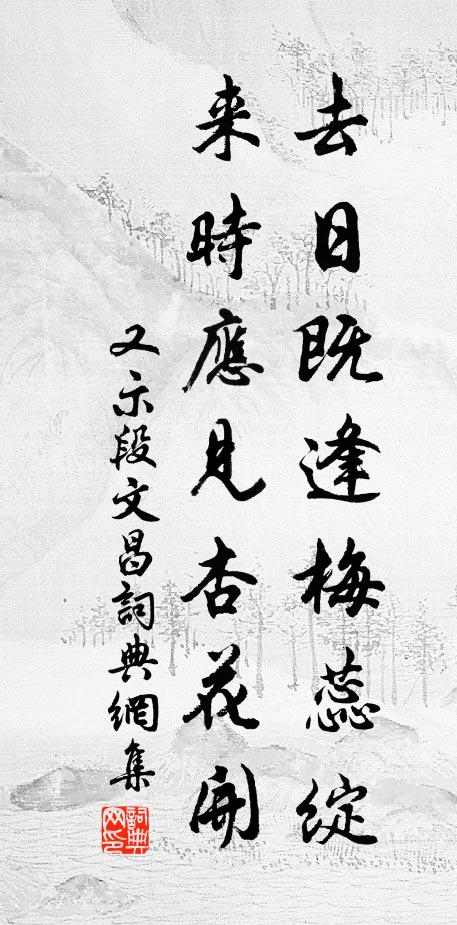 去日既逢梅蕊綻
来時應見杏花開
又示段文昌詞典網集
詞典网印